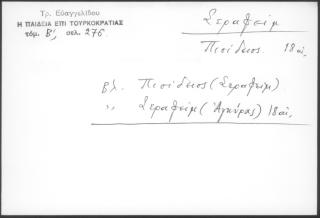 Τρ. Εὐαγγελίδου
Η ΠΑΙΔΕΙΑ ΕΠΙ ΤΟΥΡΚΟΚΡΑΤΙΑΣ
τόμ. Β', σελ. 276
Σεραφείμ
Πισίδιος. 18 αἰ.
Βλ. Πισίδιος (Σεραφείμ)
" Σεραφείμ (Ἀγκύρας) 18 αἰ.